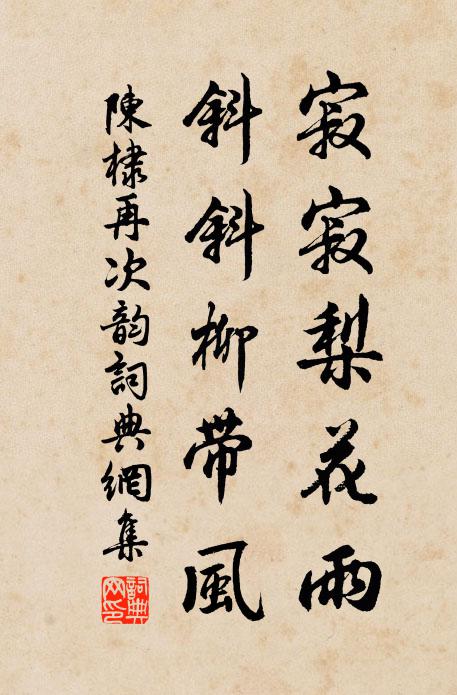 寂寂梨花雨
斜斜柳帶風
陳棣再次韵詞典網集
詞典網印